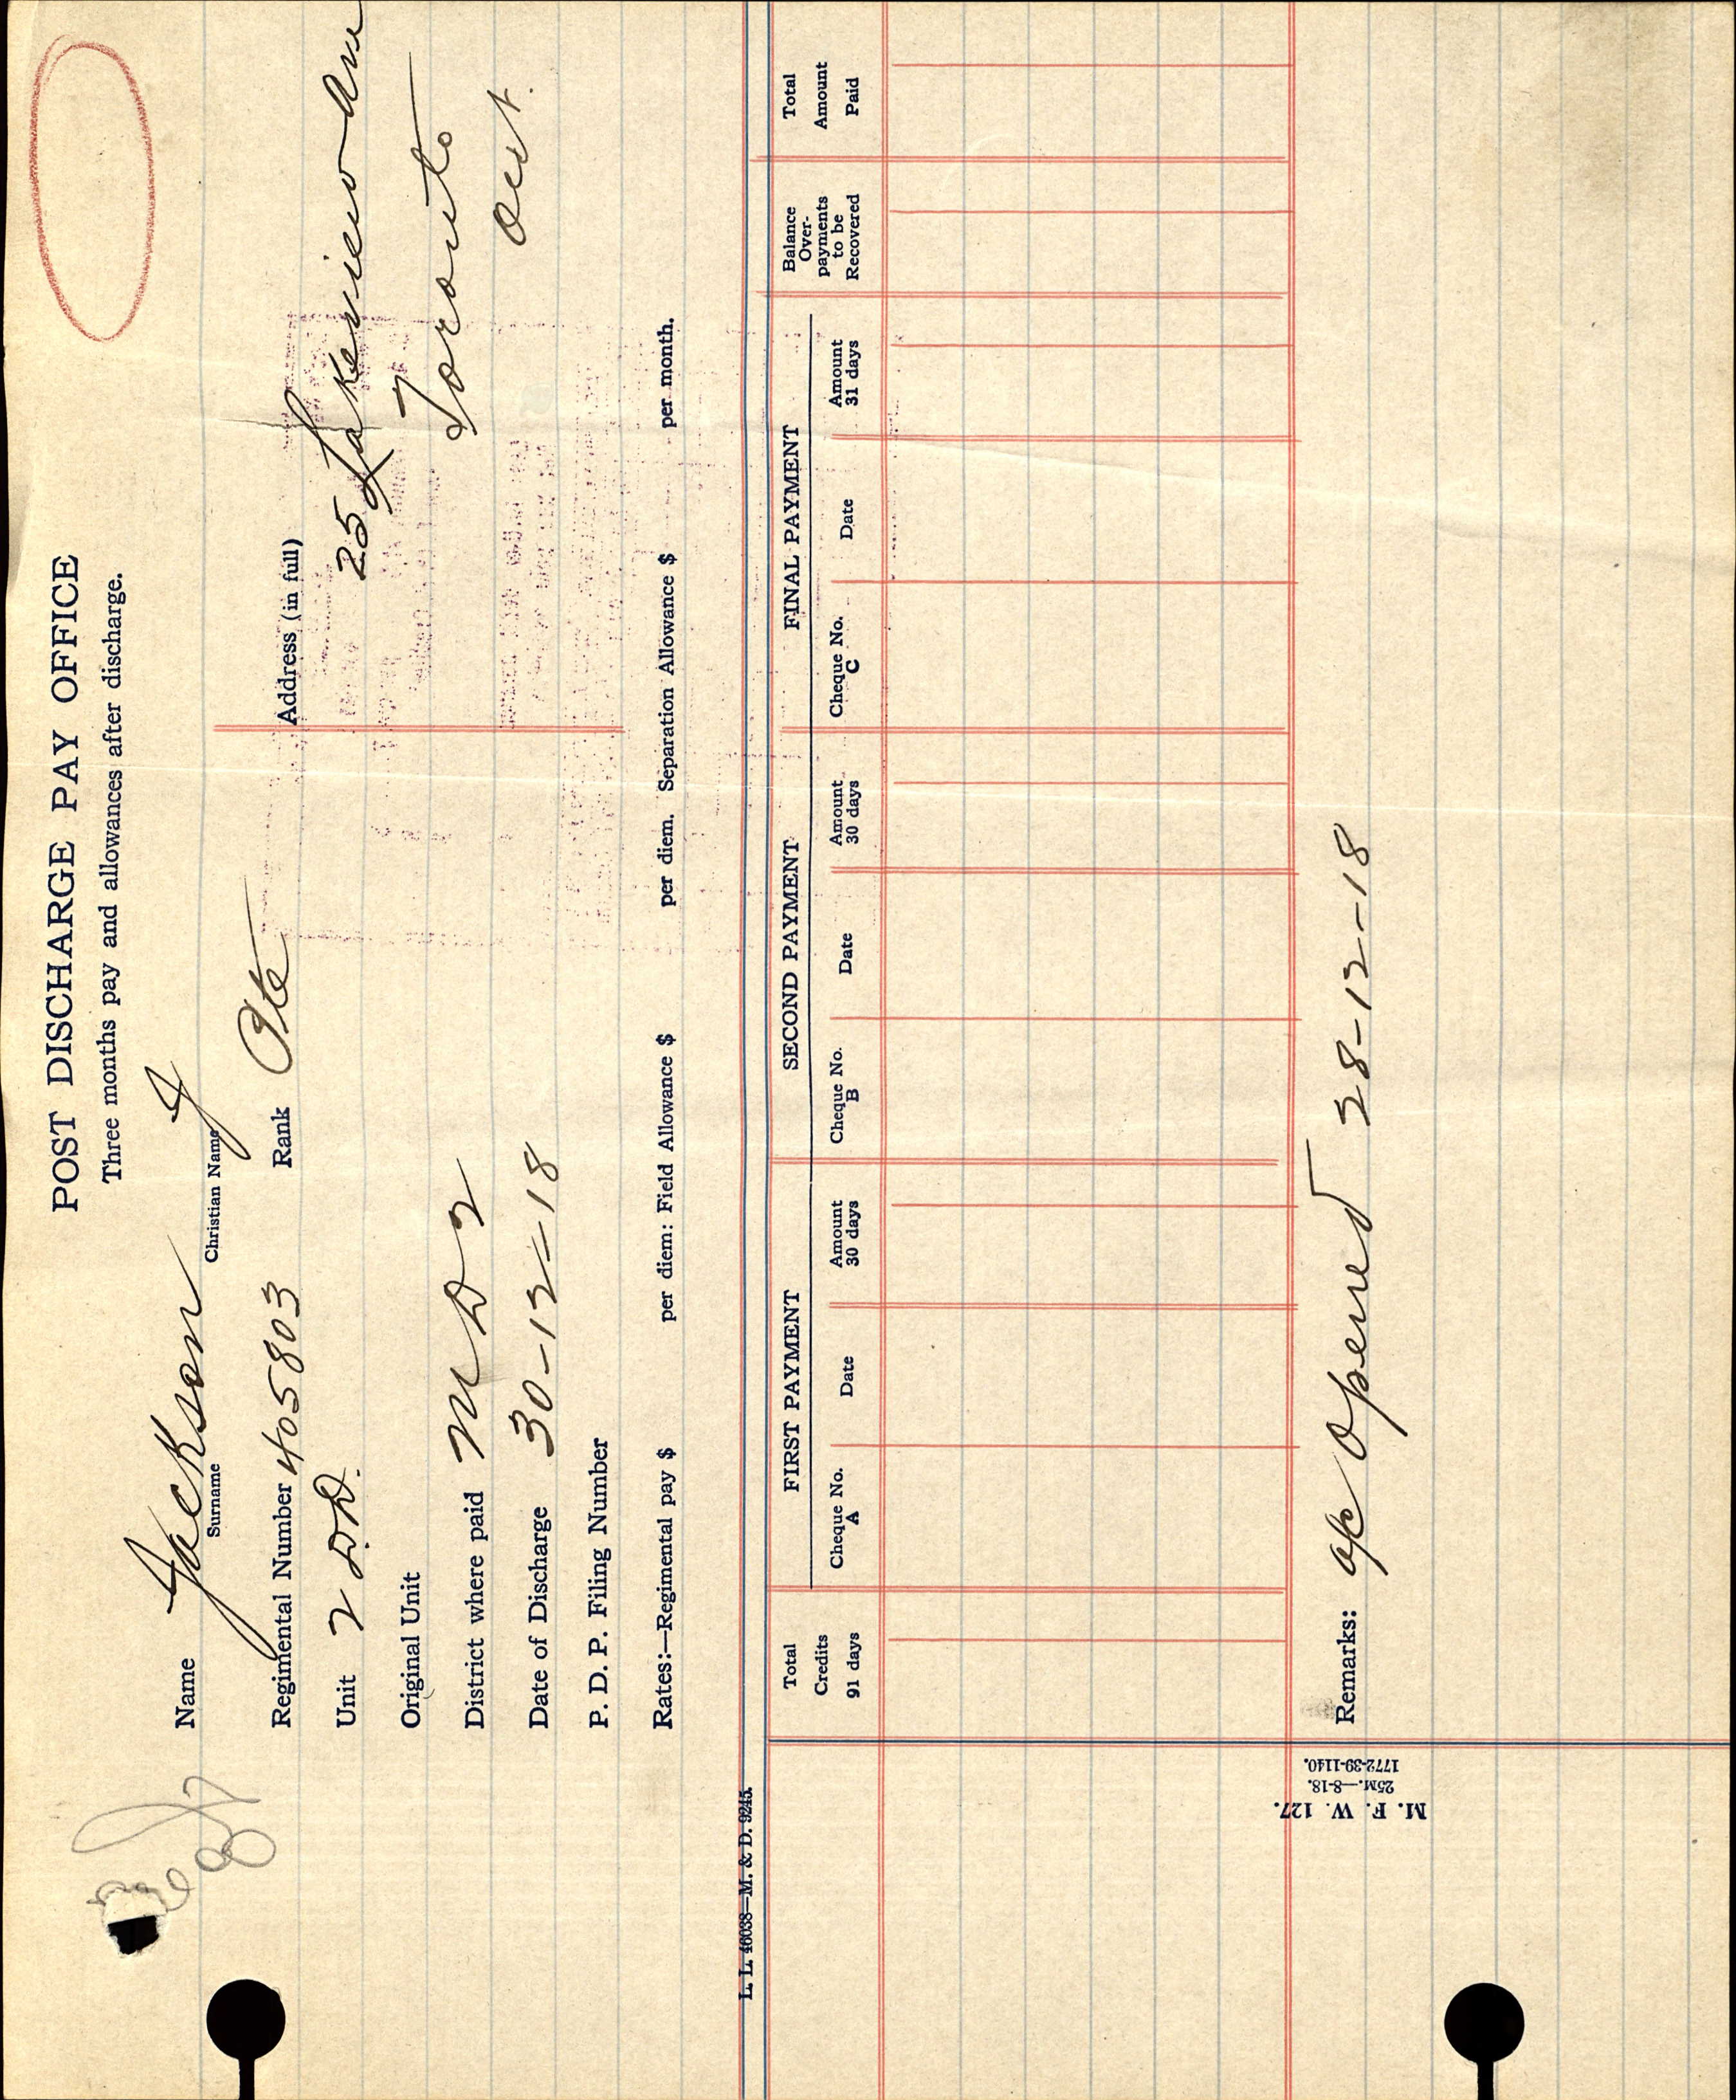 POST DISCHARGE PAY OFFICE
Three months pay and allowances after discharge.
Name Jackson J
Surname Christian Name
Regimental Number 405803 Rank Pte
Address (in full)
Unit 2 D.D. 25 Lakeview Ave
Original Unit Toronto
District where paid M D 2 Ont.
Date of Discharge 30-12-18
P. D. P. Filing Number
Rates:—Regimental pay $ per diem: Field Allowance $ per diem. Separation Allowance $ per month.
L. L. 46038—M. & D. 9245.
Total Credits 91 days
FIRST PAYMENT
Cheque No. A
Date
Amount 30 days
SECOND PAYMENT
Cheque No. B
Date
Amount 30 days
FINAL PAYMENT
Cheque No. C
Date
Amount 31 days
Balance Over-payments to be Recovered
Total Amount Paid
Remarks: a/c Opened 28-12-18
M. F. W. 127.
25M.—8-18.
1772-39-1140.